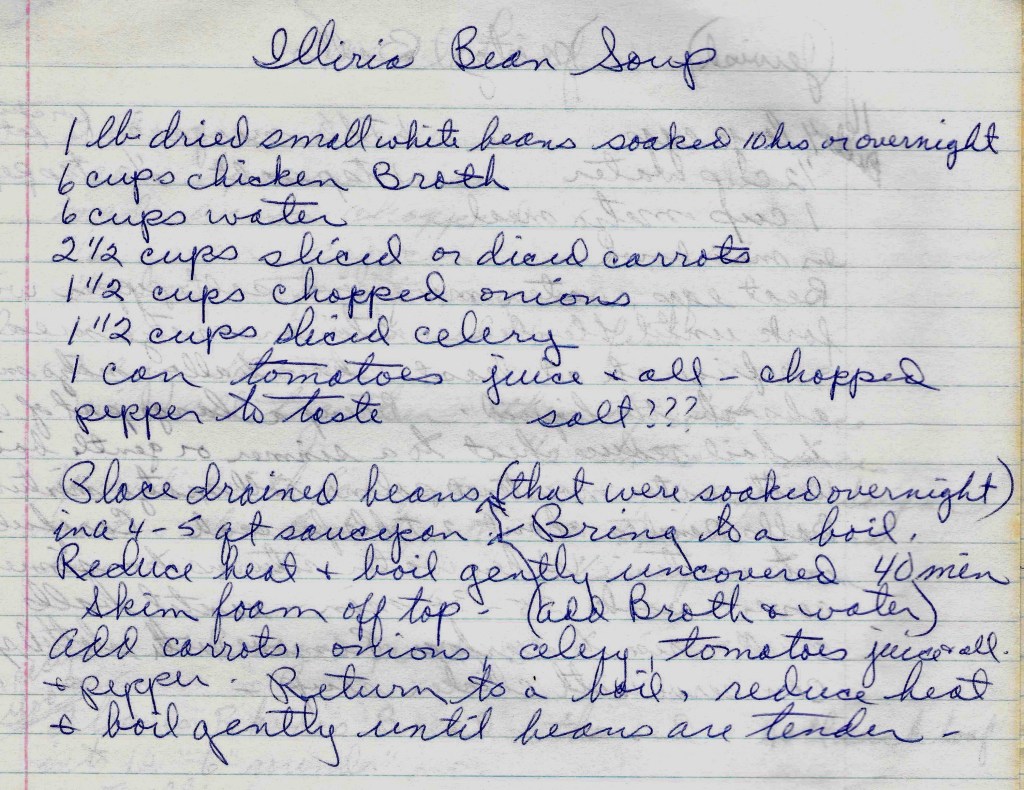 Illiria Bean Soup
1 lb dried small white beans soaked 10 hrs or overnight
6 cups chicken Broth
6 cups water
2 1/2 cups sliced or diced carrots
1 1/2 cups chopped onions
1 1/2 cups sliced celery
1 can tomatoes juice + all - chopped
pepper to taste salt???
Place drained beans (that were soaked overnight)
in a 4-5 qt saucepan. Bring to a boil.
Reduce heat + boil gently uncovered 40 min
Skim foam off top - (add Broth & water)
add carrots, onions, celery, tomatoes juice + all.
+ pepper. Return to a boil, reduce heat
& boil gently until beans are tender -